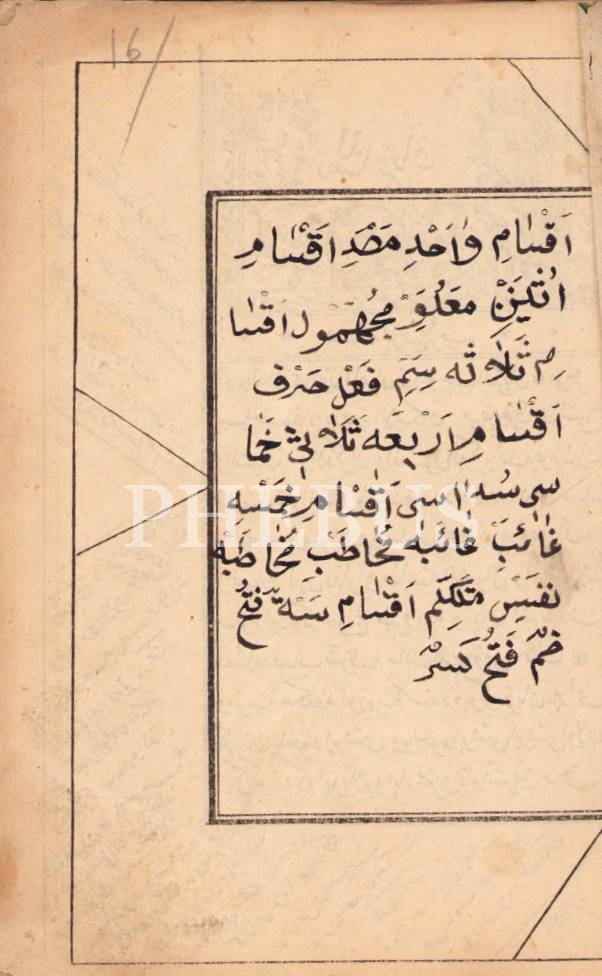 16
اَقْسَامِ وٰاَحْدِ مَصْدِ اقَسْامِ
اثْنَيَنْ مَعَلُوَِ مجُهَمْول اَقْسٰا
مِ ثَلَاثه سِمِ فَعْل حَرْف
اَقْسٰامِ اَرْبَعَه ثَلَاثی خَما
سی سُدا سی اَقسْامِ خمَسْهِ
غٰائبِ غٰائبَه مُخٰاطَبْ مُخٰاطَبه
نفسَیْ مُتَكَلّم اَقسْامِ سَتّهَ فَتحُ
ضمْ فَتحُ كَسرْ
PHEBUS